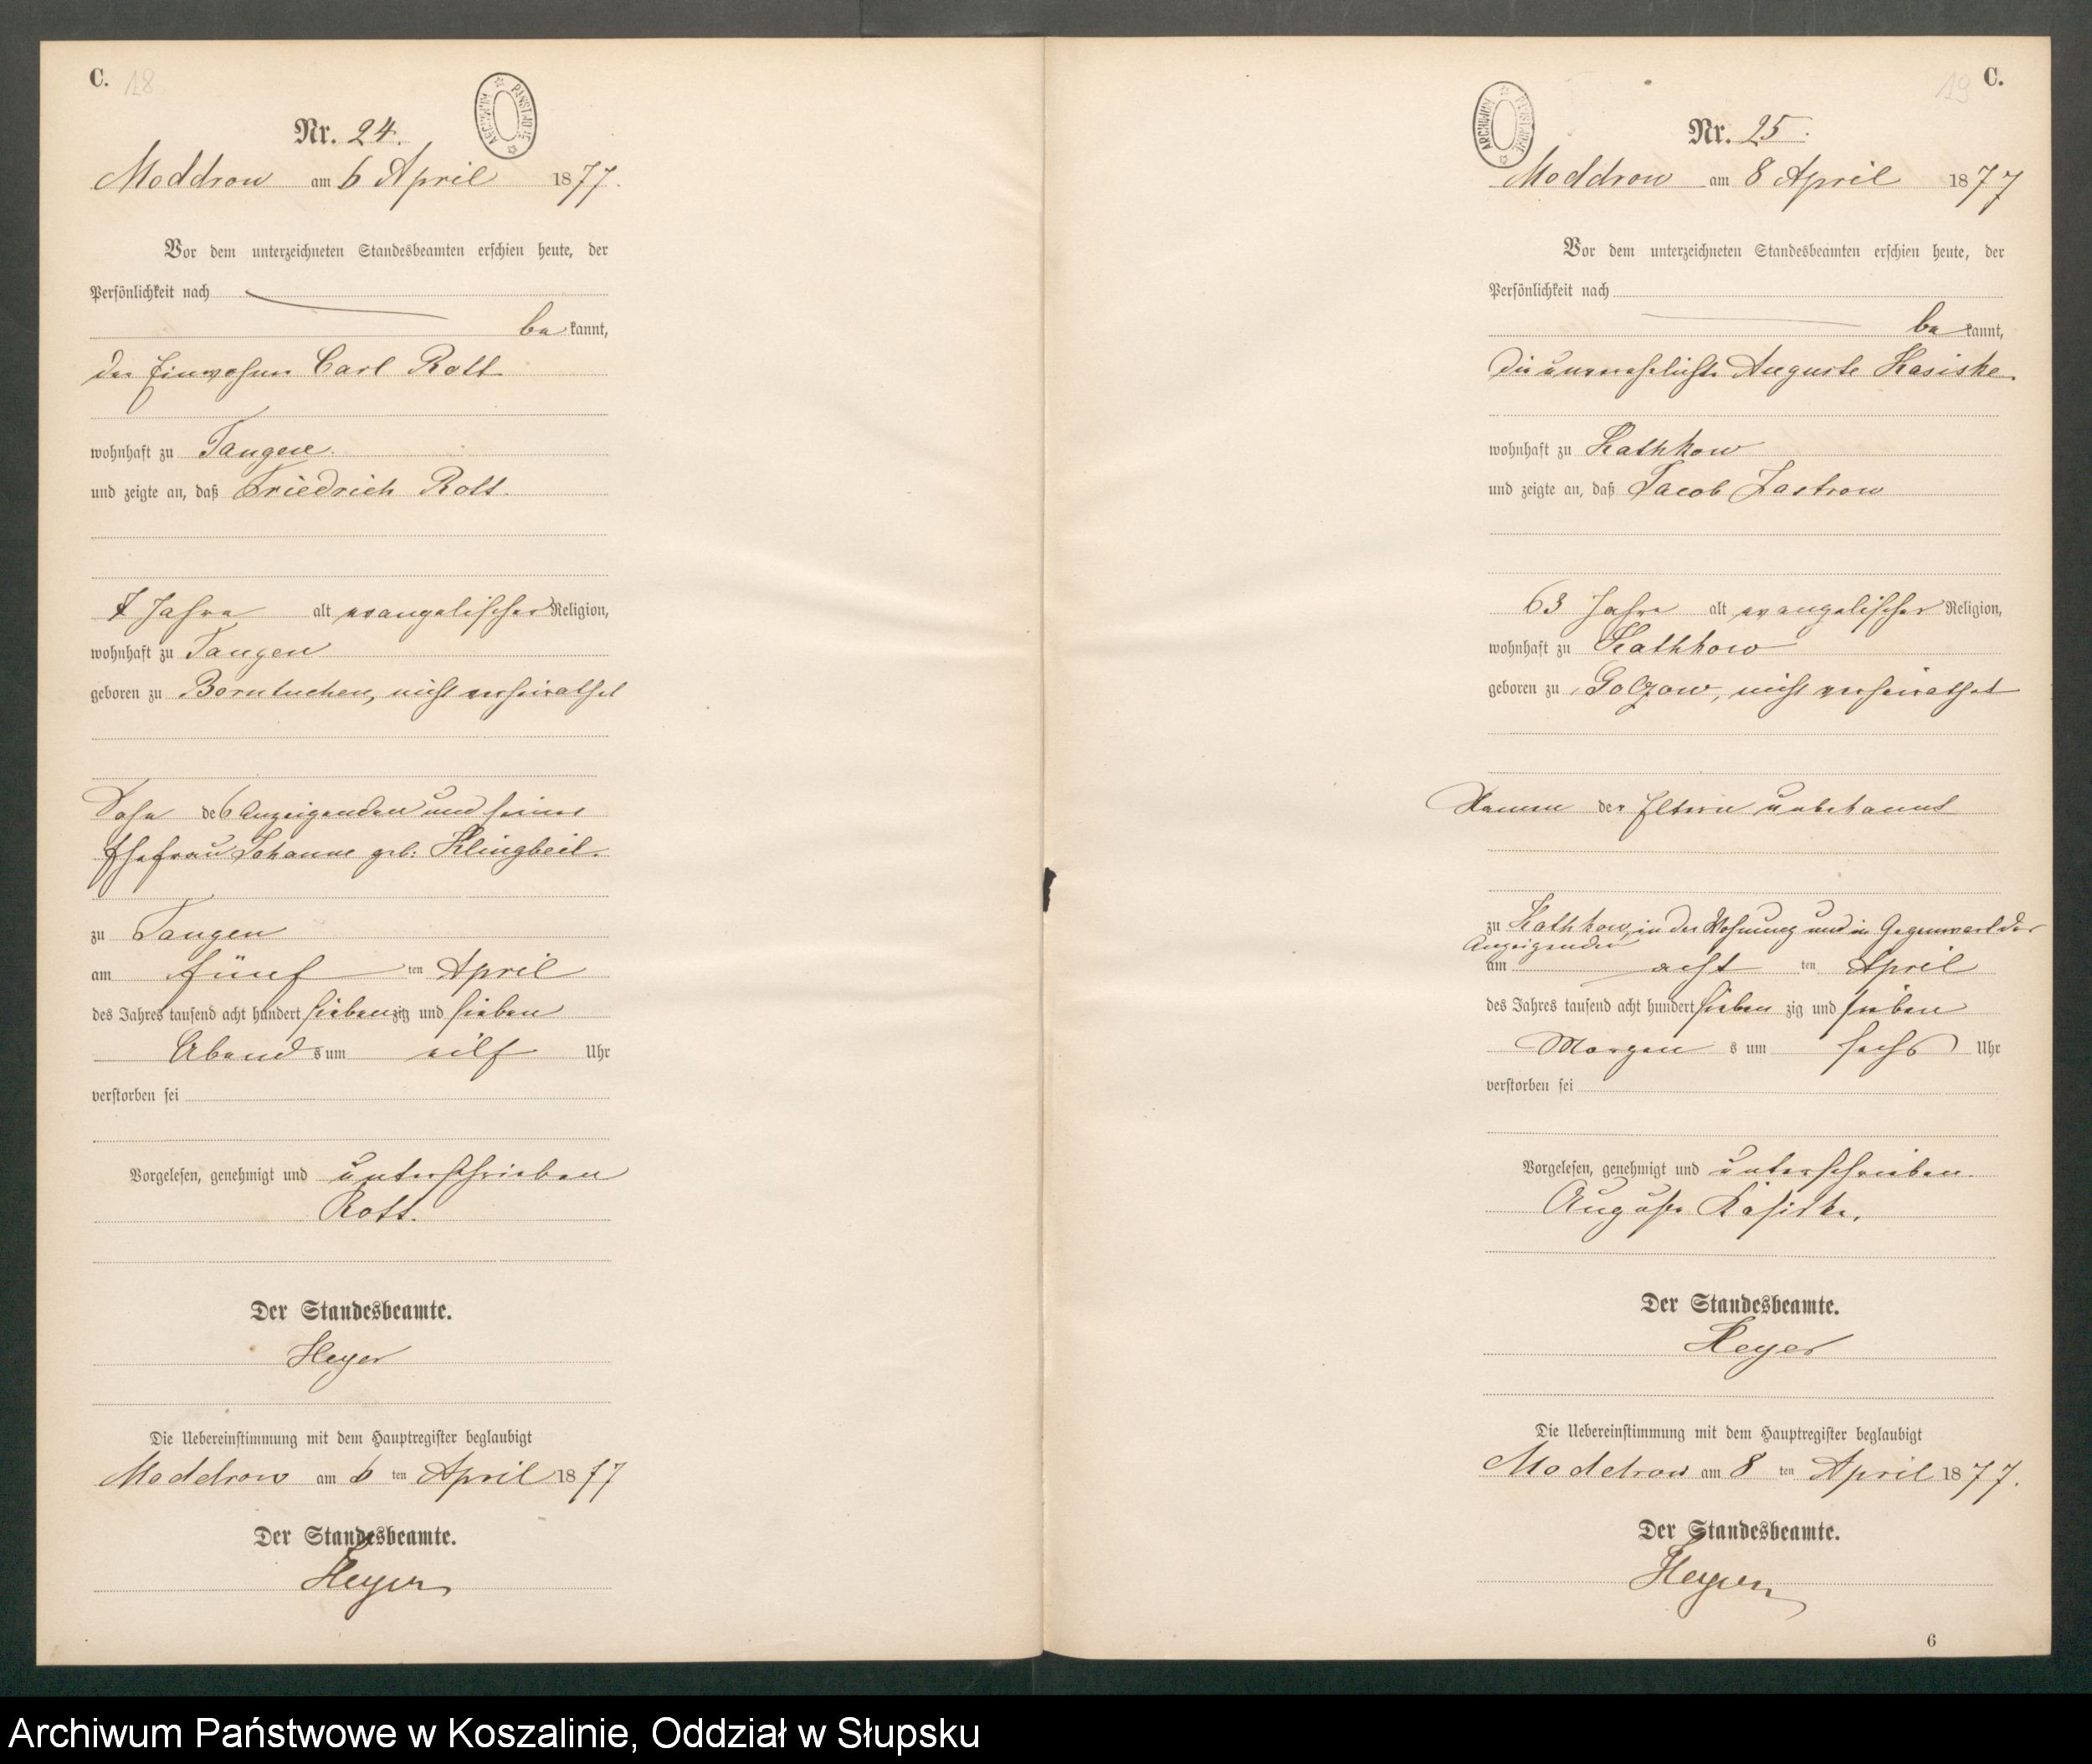 C. 18
ARCHIWUM PAŃSTWOWE
Nr. 24.
Moddrow am 6 April 1877.
Vor dem unterzeichneten Standesbeamten erschien heute, der
Persönlichkeit nach
be kannt,
der Einwohner Carl Rott
wohnhaft zu Tangen.
und zeigte an, daß Friedrich Rott.
7 Jahre alt evangelischer Religion,
wohnhaft zu Tangen
geboren zu Borntuchen, nicht verheirathet
Sohn des Anzeigenden und seiner
Ehefrau Johanne geb: Klingbeil.
zu Tangen
am fünf ten April
des Jahres tausend acht hundert siebenzig und sieben
Abend s um eilf Uhr
verstorben sei
Vorgelesen, genehmigt und unterschrieben
Rott.
Der Standesbeamte.
Heyer
Die Uebereinstimmung mit dem Hauptregister beglaubigt
Moddrow am 6 ten April 1877
Der Standesbeamte.
Heyer
19 C.
ARCHIWUM PAŃSTWOWE
Nr. 25.
Moddrow am 8 April 1877
Vor dem unterzeichneten Standesbeamten erschien heute, der
Persönlichkeit nach
be kannt,
die unverehelichte Auguste Kasiske
wohnhaft zu Kathkow
und zeigte an, daß Jacob Jastrow
63 Jahre alt evangelischer Religion,
wohnhaft zu Kathkow
geboren zu Golzow, nicht verheirathet
Namen der Eltern unbekannt
zu Kathkow, in der Wohnung und in Gegenwart der
Anzeigenden
am acht ten April
des Jahres tausend acht hundert sieben zig und sieben
Morgen s um sechs Uhr
verstorben sei
Vorgelesen, genehmigt und unterschrieben.
Auguste Kasiske.
Der Standesbeamte.
Heyer
Die Uebereinstimmung mit dem Hauptregister beglaubigt
Moddrow am 8 ten April 1877.
Der Standesbeamte.
Heyer
6
Archiwum Państwowe w Koszalinie, Oddział w Słupsku